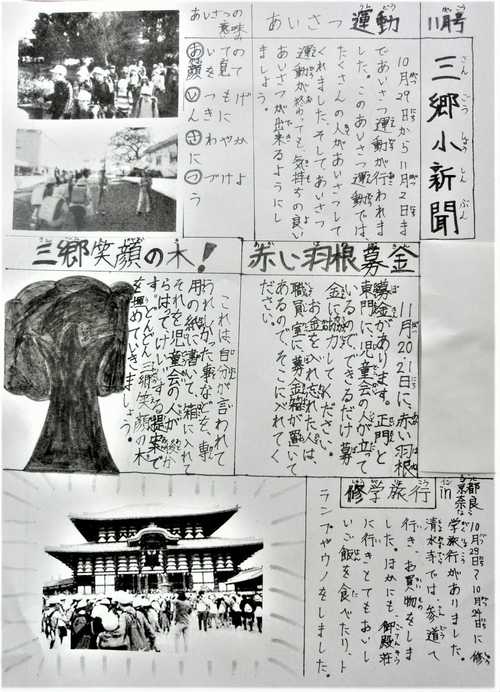 11月号
三郷小新聞
さん ごう しょう しん ぶん
あいさつ運動
10月29日から11月2日ま
であいさつ運動が行われま
した。このあいさつ運動では、
たくさんの人があいさつして
くれました。そして、あいさつ
運動が終わっても気持ちの良い
あいさつが出来るようにし
ましょう。
あいさつの
意味
あいての
顔を見て
いつもに
んきに
さわやかに
つづけよ
赤い羽根募金
11月20、21日に、赤い羽根
募金があります。正門と
東門に児童会の人が立て
いるので、できるだけ募
金に協力してください。
お金を入れ忘れた人は、
職員室に募金箱が置いて
あるので、そこに入れてく
ださい。
三郷笑顔の木!
これは、自分が言われて
うれしかった事などを、専
用の紙に書いて、箱に入れて
それを児童会の人が
はってけいじする提案で
す。どんどん三郷笑顔の木
を埋めていきましょう。
修学旅行
in
京都
奈良
学旅行がありました。
清水寺では、参道で
行き、お買い物をしま
した。ほかにも御殿荘
に行きとてもおいし
いご飯を食べたり、ト
ランプやウノをしました。